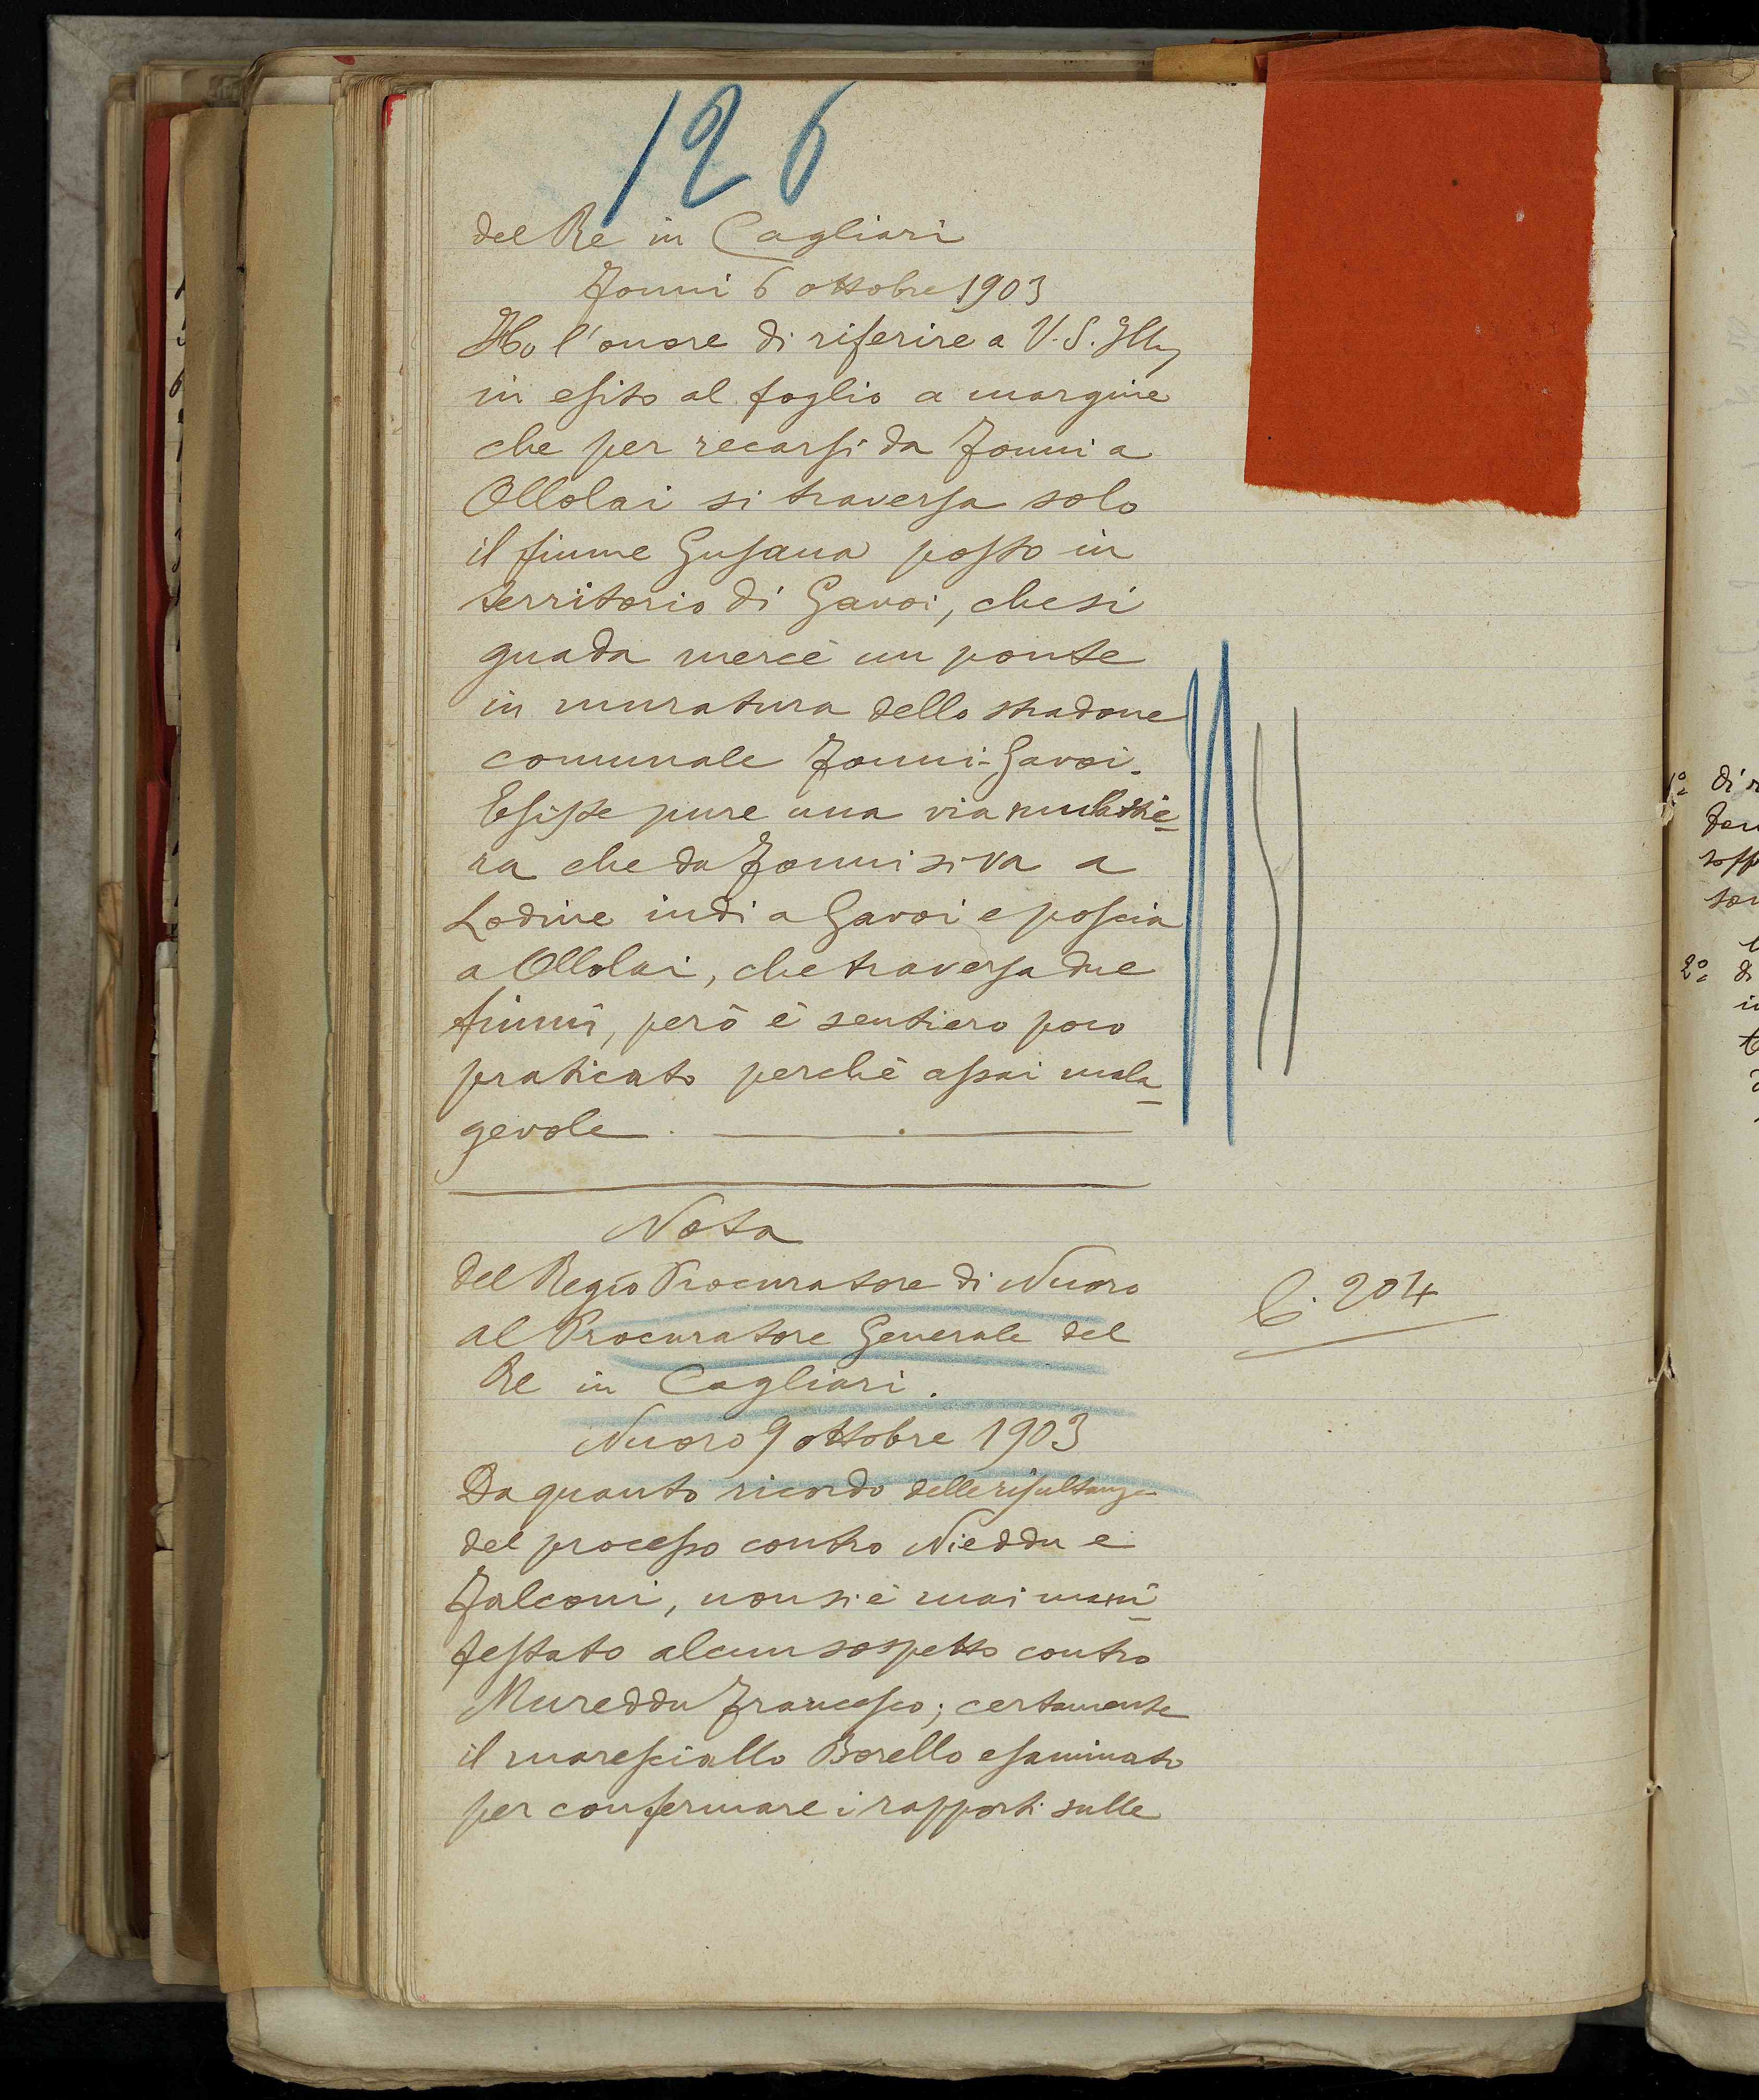 126
del Re in Cagliari
Fonni 6 ottobre 1903
Ho l'onore di riferire a V. S. Illm̃a
in esito al foglio a margine
che per recarsi da Fonni a
Ollolai si traversa solo
il fiume Gusana posto in
territorio di Gavoi, che si
guada mercè un ponte
in muratura dello stradone
comunale Fonni-Gavoi.
Esiste pure una via mulattie-
ra che da Fonni si va a
Lodine indi a Gavoi e poscia
a Ollolai, che traversa due
fiumi, però è sentiero poco
praticato perchè assai mala-
gevole.
Nota
del Regio Procuratore di Nuoro
al Procuratore Generale del
Re in Cagliari.
f. 204
Nuoro 9 ottobre 1903
Da quanto ricordo delle risultanze
del processo contro Nieddu e
Falconi, non si è mai mani-
festato alcun sospetto contro
Mureddu Francesco; certamente
il maresciallo Borello esaminato
per confermare i rapporti sulle
1º di
2º di